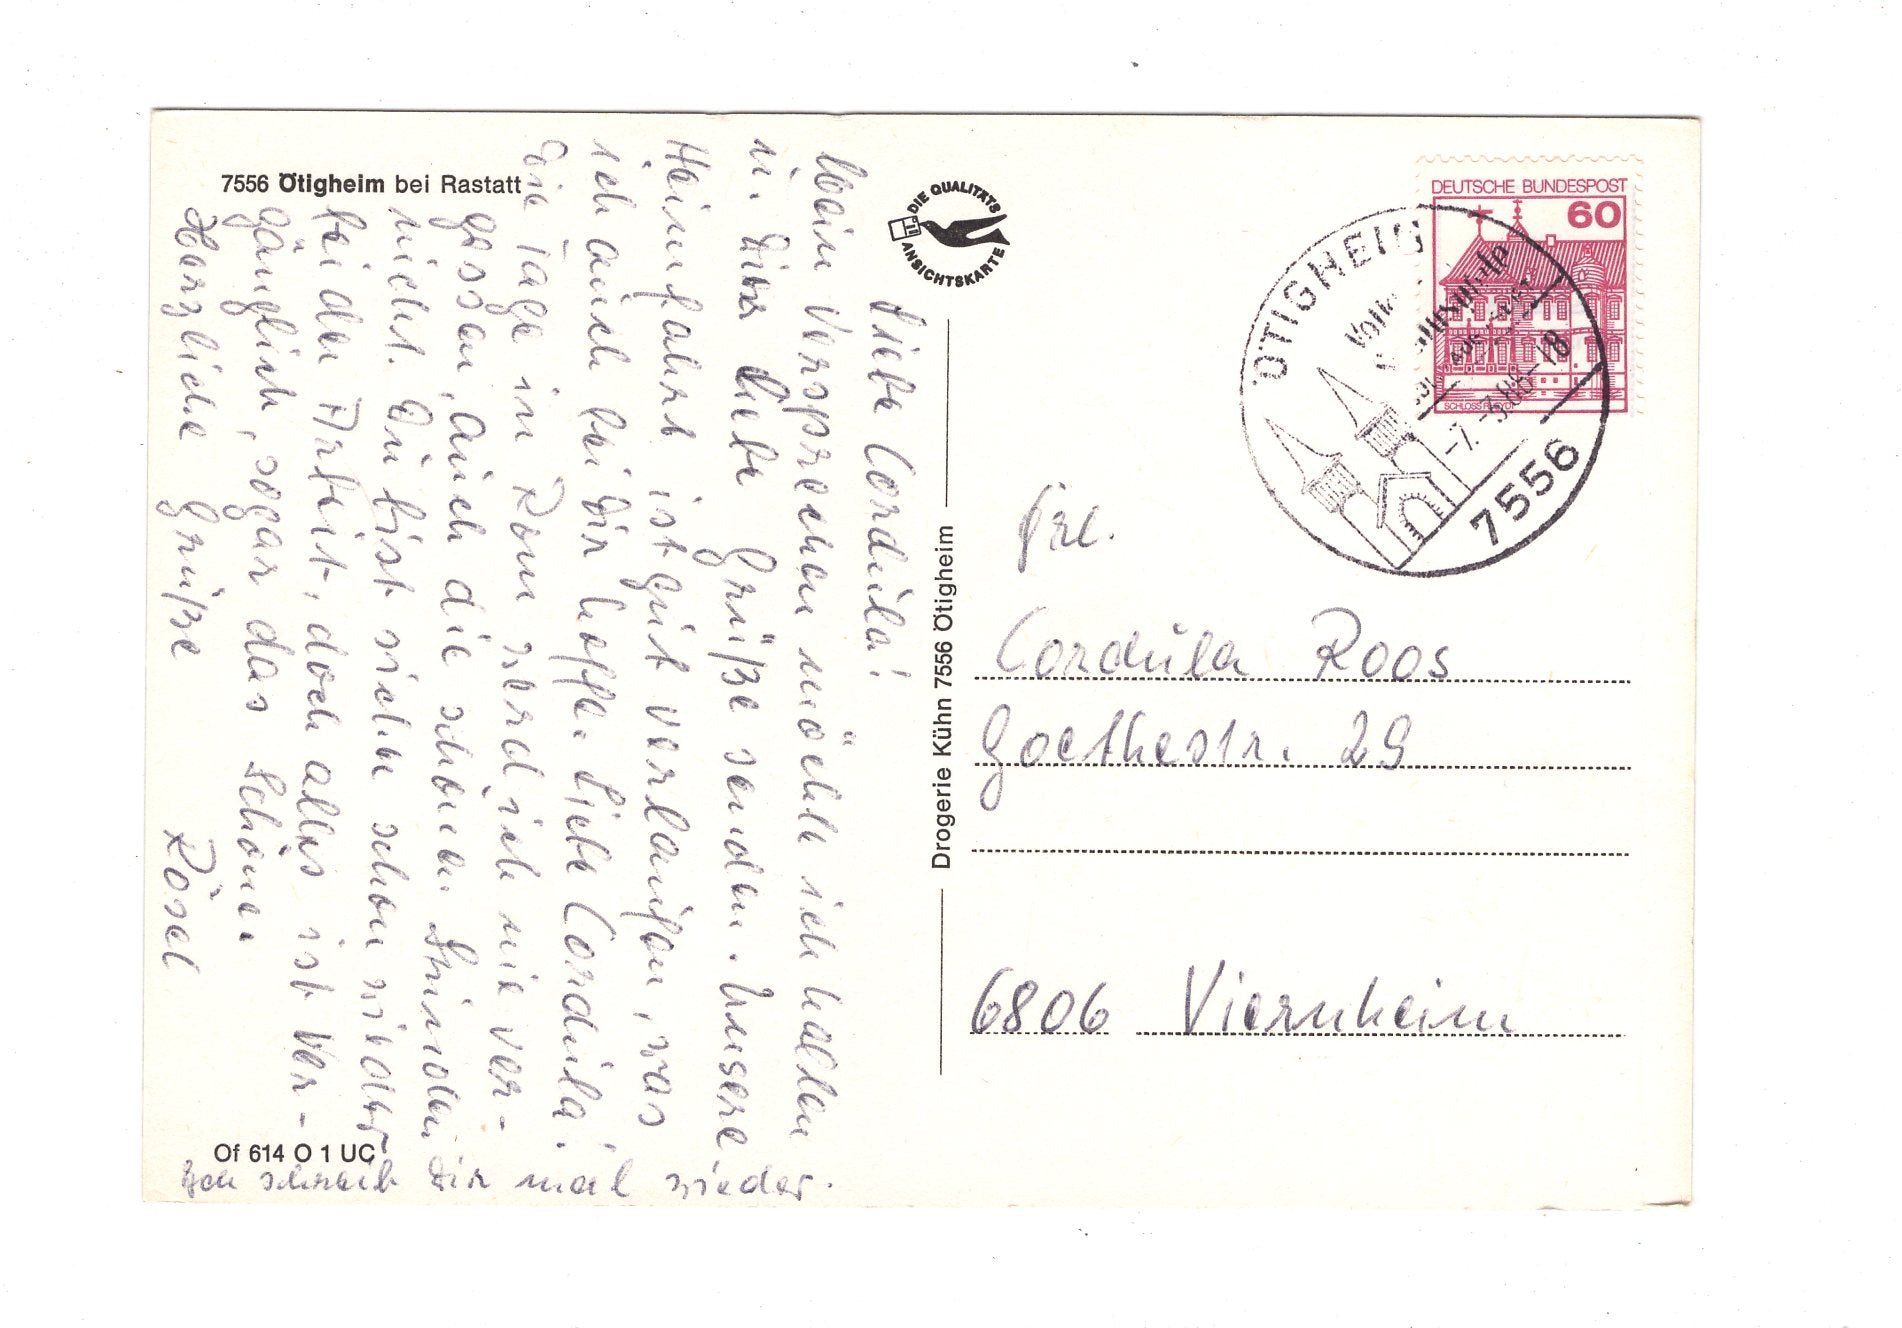 7556 Ötigheim bei Rastatt
DIE QUALITÄTS
ANSICHTSKARTE
Liebe Cordula!
Mein Versprechen möchte ich halten
u. Dir liebe Grüße senden. Unsere
Heimfahrt ist gut verlaufen, was
ich auch bei Dir hoffe. Liebe Cordula!
Die Tage in Rom werd ich nie ver-
gessen, auch die schönen Stunden
nicht. Du bist sicher schon wieder
bei der Arbeit, doch alles ist ver-
gänglich, sogar das Schöne.
Herzliche Grüße Rösel
Ich schreib Dir mal wieder.
Of 614 O 1 UC
Drogerie Kühn 7556 Ötigheim
DEUTSCHE BUNDESPOST
60
SCHLOSS RHEYDT
ÖTIGHEIM
-7.-3.88-18
7556
Frl.
Cordula Roos
Goethestr. 29
6806 Viernheim